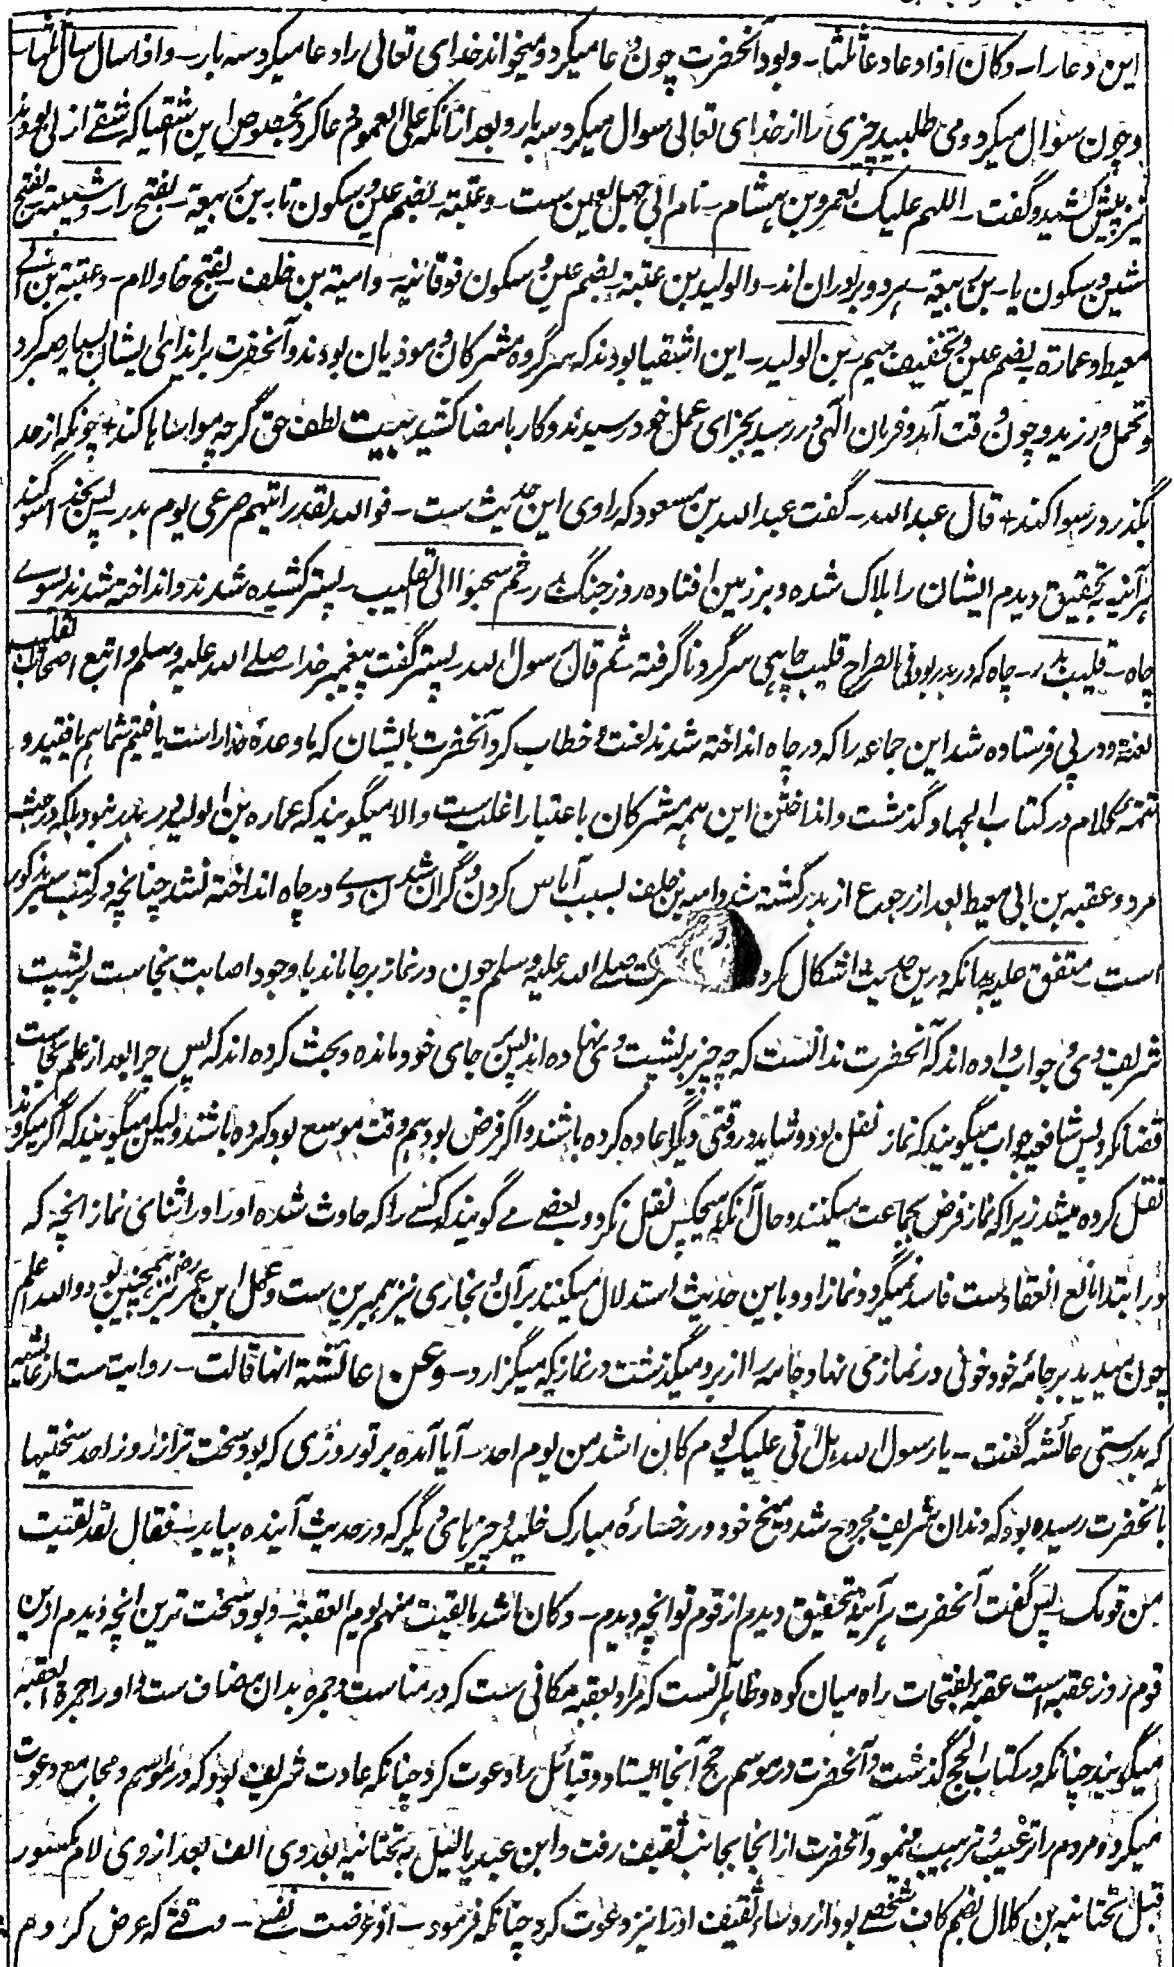 این دعا را ـ وکان اذا دعا دعا ثلثا ـ و بود آنحضرت چون دعا میکرد و میخواند خدای تعالی را دعا میکرد سه بار ـ واذا سال سال ثلثا ـ
و چون سوال میکرد و می طلبید چیزی را از خدای تعالی سوال میکرد سه بار و بعد ازانکه علی العموم دعا کرد بخصوص این اشقیا که شقے ازلی بودند
نیز پیش کشید و گفت ـ اللهم علیک بعمرو بن هشام ـ نام ابی جهل لعین ست ـ و عتبة ـ بضم عین و سکون تا بن ربیعة ـ بفتح را ـ و شیبة ـ بفتح
شین و سکون یا ـ بن ربیعة ـ هر دو برادران اند ـ والولید بن عتبة ـ بضم عین و سکون فوقانیه ـ و امیة بن خلف ـ بفتح خا و لام ـ و عقبة بن ابی
معیط و عمارة ـ بضم عین و تخفیف میم ـ بن الولید ـ این اشقیا بودند که سر گروه مشرکان و موذیان بودند و آنحضرت بر ایذای ایشان بسیار صبر کرد
و تحمل ورزید و چون وقت آمد و فرمان الٰهی در رسید بجزای عمل خود رسیدند و کار با مضا کشید بیت لطف حق گرچه مواساها کند + چونکه از حد
بگذرد رسوا کند + قال عبد الله ـ گفت عبد الله بن مسعود که راوی این حدیث ست ـ فو الله لقد رایتهم صرعی یوم بدر ـ پس بخدا سوگند
هر آئنه بتحقیق دیدم ایشان را هلاک شده و بر زمین افتاده روز جنگ بدر ـ ثم سحبوا الی القلیب ـ پستر کشیده شدند و انداخته شدند بسوے
چاه ـ قلیب بدر ـ چاه که در بدر بود فی الصراح قلیب چاهی سر گرد نا گرفته ثم قال رسول الله ـ پستر گفت پیغمبر خدا صلے الله علیه وسلم و اتبع اصحاب القلیب
لعنة و در پی فرستاده شد این جماعه را که در چاه انداخته شدند لعنت و خطاب کرد آنحضرت بایشان که ما وعدهٔ خدا راست یافتیم شما هم یافتید و
تتمهٔ کلام در کتاب الجهاد گذشت و انداختن این همه مشرکان باعتبار اغلب ست والا میگویند که عماره بن الولید در بدر نبود بلکه در حبشه
مرد و عقبه بن ابی معیط بعد از رجوع از بدر کشته شد و امیه بن خلف بسبب آماس کردن و گران شدن وے در چاه انداخته نشد چنانچه در کتب سیر مذکور
است ـ متفق علیه بدانکه درین حدیث اشکال کرده حضرت صلے الله علیه وسلم چون در نماز بر جا ماند با وجود اصابت نجاست بر پشت
شریف وی و جواب داده اند که آنحضرت ندانست که چه چیز بر پشت وی نهاده اند پس بر جای خود مانده و بحث کرده اند که پس چرا بعد از علم نجاست
قضا نکرد پس شافعیه جواب میگویند که نماز نفل بود و شاید در وقتی دیگر اعاده کرده باشند و اگر فرض بود هم وقت موسع بود کرده باشند ولیکن میگویند که اگر میکردند
نقل کرده میشد زیرا که نماز فرض بجماعت میکنند و حال آنکه هیچکس نقل نکرد و بعضے مے گویند که کسے را که حادث شده او را در اثنای نماز انچه که
در ابتدا مانع انعقادست فاسد نمیگردد نماز او و باین حدیث استدلال میکنند بر آن و بخاری نیز همبرین ست و عمل ابن عمر رض نیز همچنین بود والله اعلم
چون میدید بر جامهٔ خود خونی در نماز می نهاد جامه را از بر و میگذشت در نمازیکه میگزارد ـ وعن عائشة انها قالت ـ روایت ست از عائشه
که بدرستی عائشه گفت ـ یا رسول الله هل اتی علیک یوم کان اشد من یوم احد ـ آیا آمده بر تو روزی که بود سخت تر از روز احد سختیها
بآنحضرت رسیده بود که دندان شریف مجروح شد و میخ خود در رخسارهٔ مبارک خلید و چیزهای دیگر که در حدیث آینده بیاید ـ فقال لقد لقیت
من قومک ـ پس گفت آنحضرت هر آئنه بتحقیق دیدم از قوم تو انچه دیدم ـ وکان اشد ما لقیت منهم یوم العقبة ـ و بود سخت ترین انچه دیدم ازین
قوم روز عقبه است عقبه بفتحات راه میان کوه و ظاهر آنست که مراد بعقبه مکانی ست که در منا ست و جمره بدان مضاف ست و او را جمرة العقبة
میگویند چنانکه در کتاب الحج گذشت و آنحضرت در موسم حج آنجا ایستاد و قبائل را دعوت کرد چنانکه عادت شریف بود که در مواسم و مجامع دعوت
میکرد و مردم را ترغیب و ترهیب مینمود آنحضرت از انجا بجانب ثقیف رفت و ابن عبد یالیل به تحتانیه بعد وی الف بعد از وی لام مکسور
قبل تحتانیه بن کلال بضم کاف شخصے بود از رؤساء ثقیف او را نیز دعوت کرد چنانکه فرمود ـ اذ عرضت نفسے ـ وقتے که عرض کردم